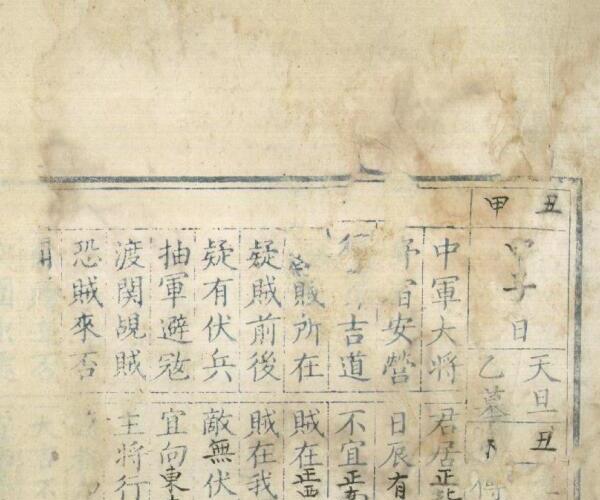 丑
甲
甲子日
天旦丑
乙墓
中軍大将
君居正
宿安營
日辰有
吉道
不宜正南
賊所在
賊在正西
疑賊前後
賊在我
疑有伏兵
敵無伏
抽軍避寇
宜向東
渡関覘賊
主将行
恐賊來否